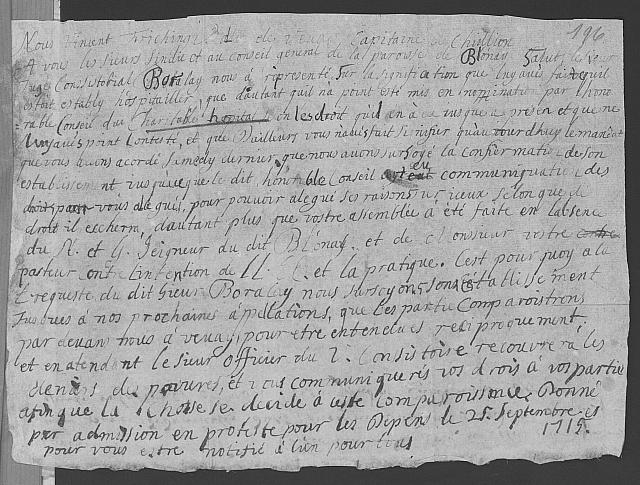 196
Nous Vincent Frisching Bal. de Vevay Capitaine de Chillion
A vous les sieurs Sindic et au conseil general de la paroisse de Blonay Salut, le sieur
Juge Consistorial Boralay nous à representé, sur la signification que luy avés faite quil
estoit estably hospitallier, que dautant quil na point esté mis en nomination par l'hono
rable Conseil du Charitable honorable en les droit quil en à eu jusque a présen et que ne
luy avés point Contesté, et que d'ailleurs vous n'avés fait signifier quau iourdhuy le mandat
que vous avions acordé samedy dernier, que nous avons sursoyé la confirmation de son
establissement jusques que le dit honorable Conseil eu communiquation des
vous alegués, pour pouvoir alegué ses raisons au vieux selon que de
droit il echerra, dautant plus que vostre assemblée à été faite en labsence
du N. et G. Seigneur du dit Blonay et de Monsieur vostre
pasteur contre lintention de LL. EE. et la pratique. Cest pour quoy à la
requeste du dit Sieur Boralay nous surseyons son establissement
jusques à nos prochaines apellations, que les partie Comparoistrons
par devant nous à vevay, pour etre entendues reciproquement,
et en atendant le sieur officier du V. Consistoire recouvrera les
deniers des pauvres, et vous communiquerés vos drois à vos partie
afin que la Chose se decide à cette comparoissance. Donné
par admission en proteste pour les Dépens le 25. Septembre
1715.
pour vous estre notifié à lieu pour tous